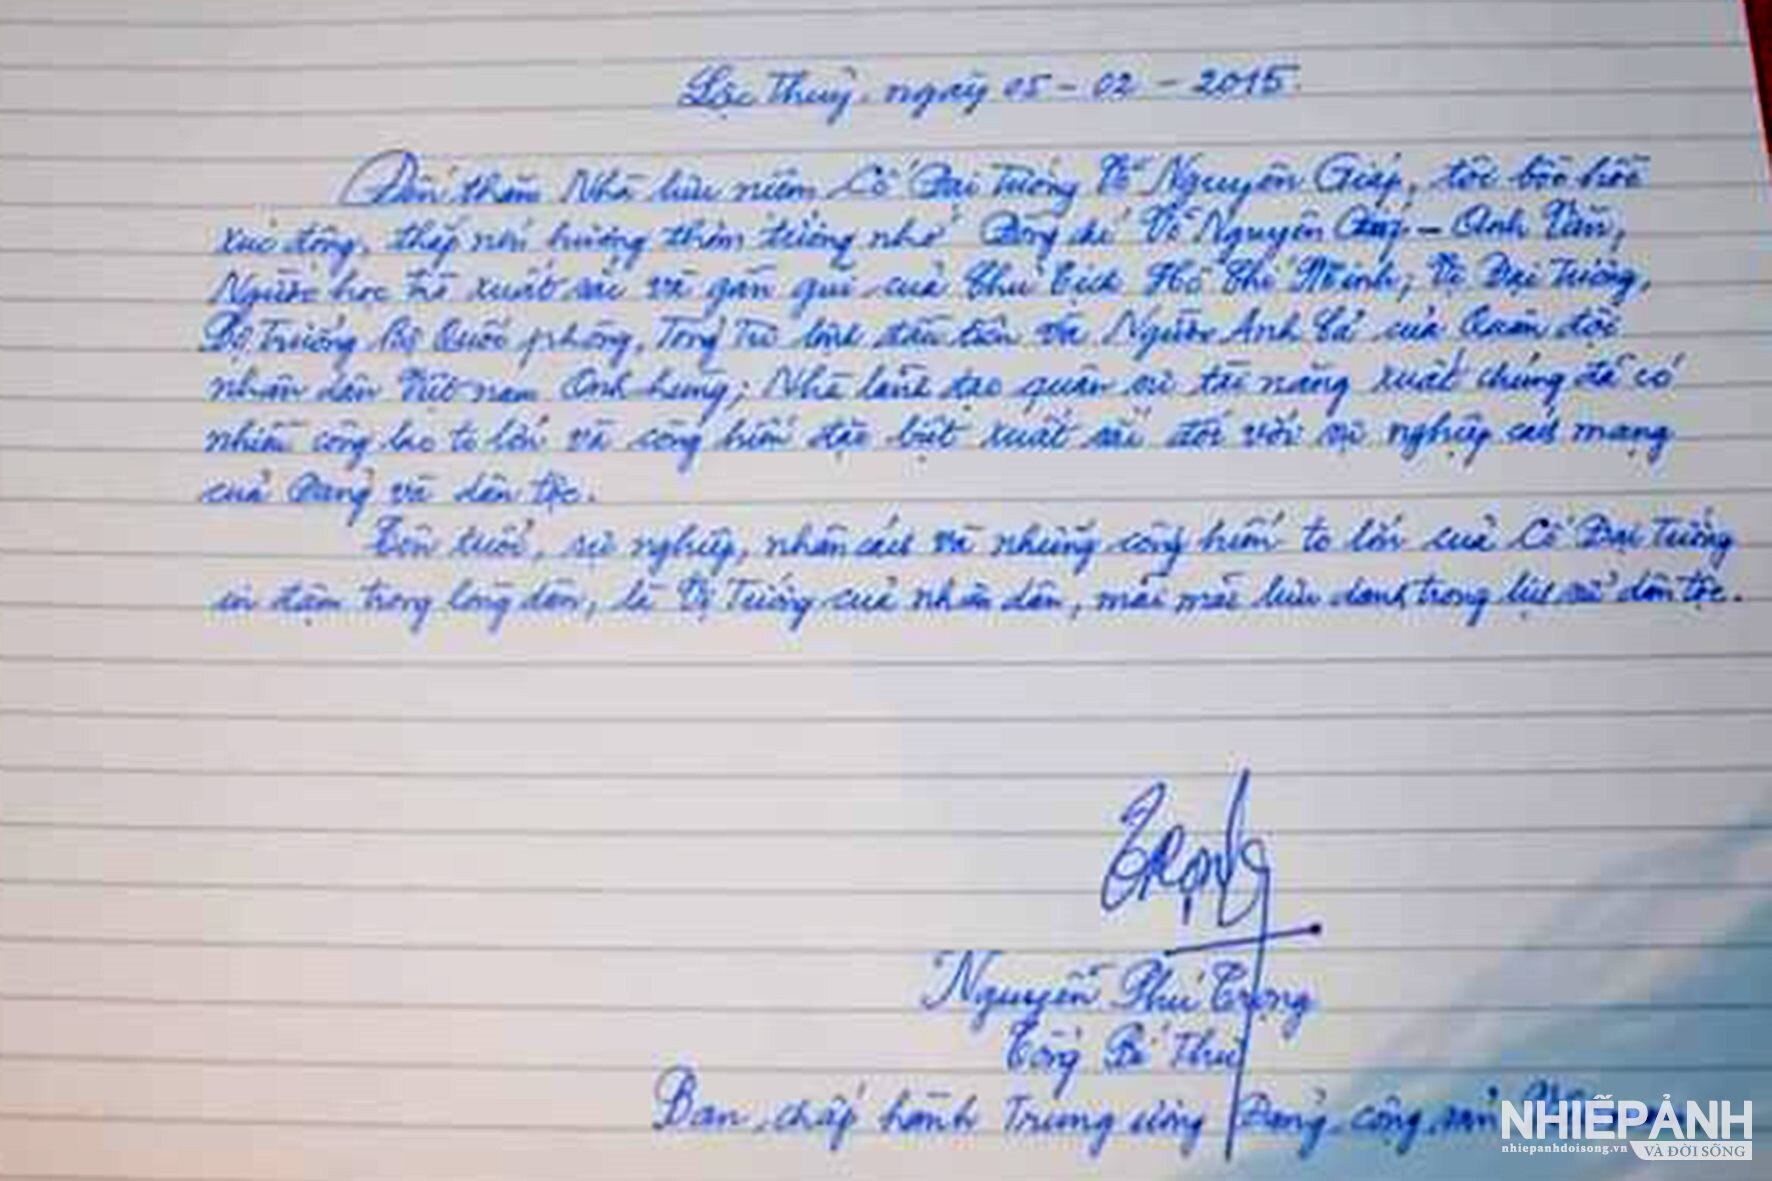 Lộc Thuỷ, ngày 05 - 02 - 2015.
Đến thăm Nhà lưu niệm Cố Đại Tướng Võ Nguyên Giáp, tôi bồi hồi
xúc động, thắp nén hương thơm tưởng nhớ Đồng chí Võ Nguyên Giáp - Anh Văn,
Người học trò xuất sắc và gần gũi của Chủ tịch Hồ Chí Minh; Vị Đại Tướng,
Bộ Trưởng Bộ Quốc phòng, Tổng Tư lệnh đầu tiên và Người Anh Cả của Quân đội
nhân dân Việt nam Anh hùng; Nhà lãnh đạo quân sự tài năng xuất chúng đã có
nhiều công lao to lớn và cống hiến đặc biệt xuất sắc đối với sự nghiệp cách mạng
của Đảng và dân tộc.
Tên tuổi, sự nghiệp, nhân cách và những cống hiến to lớn của Cố Đại Tướng
in đậm trong lòng dân, là Vị Tướng của nhân dân, mãi mãi lưu danh trong lịch sử dân tộc.
Trọng
Nguyễn Phú Trọng
Tổng Bí Thư
Ban chấp hành Trung ương Đảng cộng sản
NHIẾPẢNH
nhiepanhdoisong.vn VÀ ĐỜI SỐNG